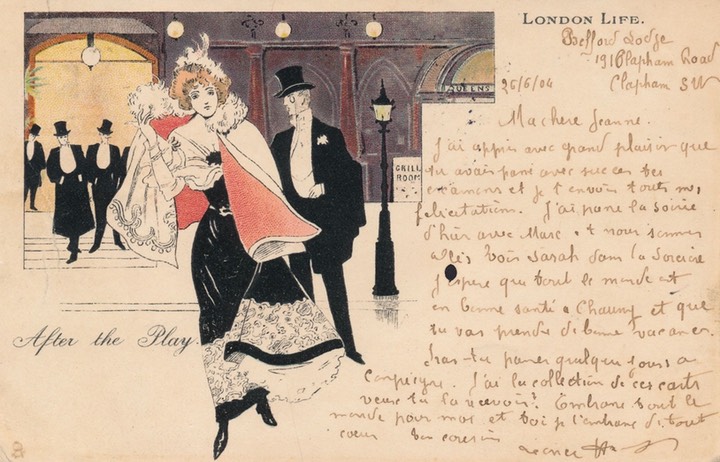 LONDON LIFE.
Befford Lodge
191 Clapham Road
25/6/04 Clapham SW
QUEENS
GRILL
ROOM
After the Play
Ma chere Jeanne.
J'ai appris avec grand plaisir que
tu avais passé avec succes tes
examens et je t'envois toutes mes
felicitations. J'ai passé la soirée
d'hier avec Marc. nous sommes
allés voir Sarah dans la Sorciere
J'espere que tout le monde est
en bonne santé a Chauny et que
tu vas prendre de bonne vacances.
Iras-tu passer quelques jours a
Compiegne. J'ai la collection de ces carts
veux tu la recevoir? Embrasse tout le
monde pour moi et toi je t'embrasse de tout
coeur ton cousin